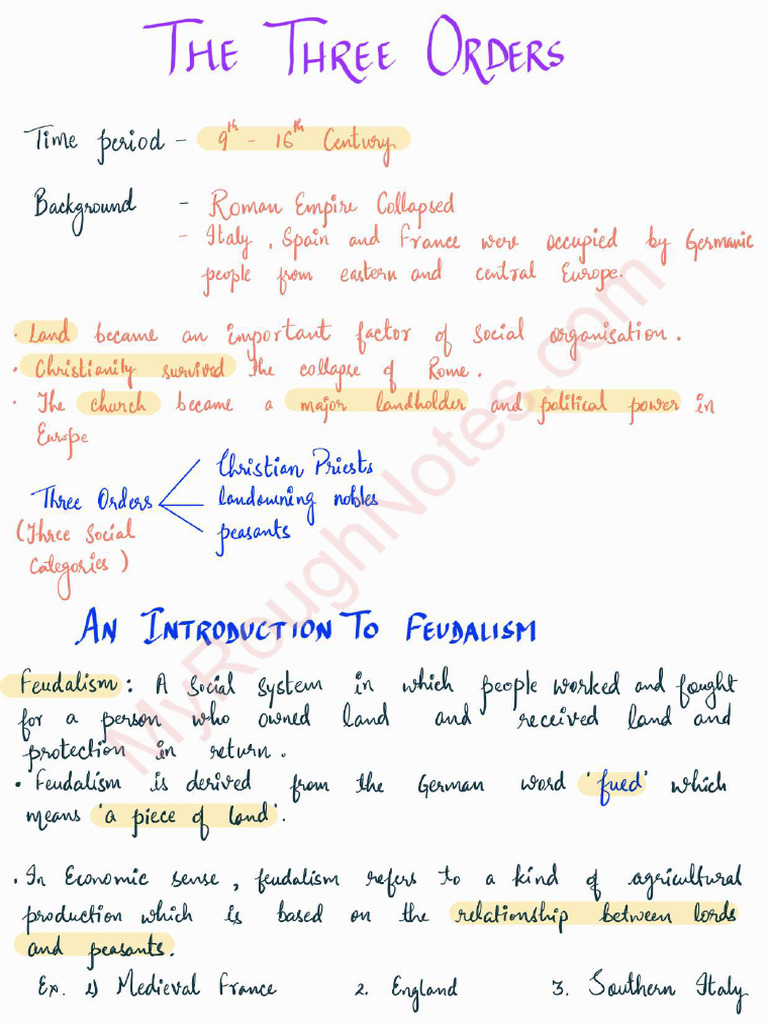 THE THREE ORDERS
Time period - 9th - 16th Century
Background - Roman Empire Collapsed
- Italy, Spain and France were occupied by Germanic
people from eastern and central Europe.
· Land became an important factor of social organisation.
· Christianity survived the collapse of Rome.
· The church became a major landholder and political power in
Europe
Christian Priests
Three Orders landowning nobles
(Three Social peasants
Categories)
AN INTRODUCTION TO FEUDALISM
Feudalism: A social system in which people worked and fought
for a person who owned land and received land and
protection in return.
• Feudalism is derived from the German word 'fued' which
means 'a piece of land'.
• In Economic sense, feudalism refers to a kind of agricultural
production which is based on the relationship between lords
and peasants.
Ex. 1) Medieval France 2. England 3. Southern Italy
MyRoughNotes.com